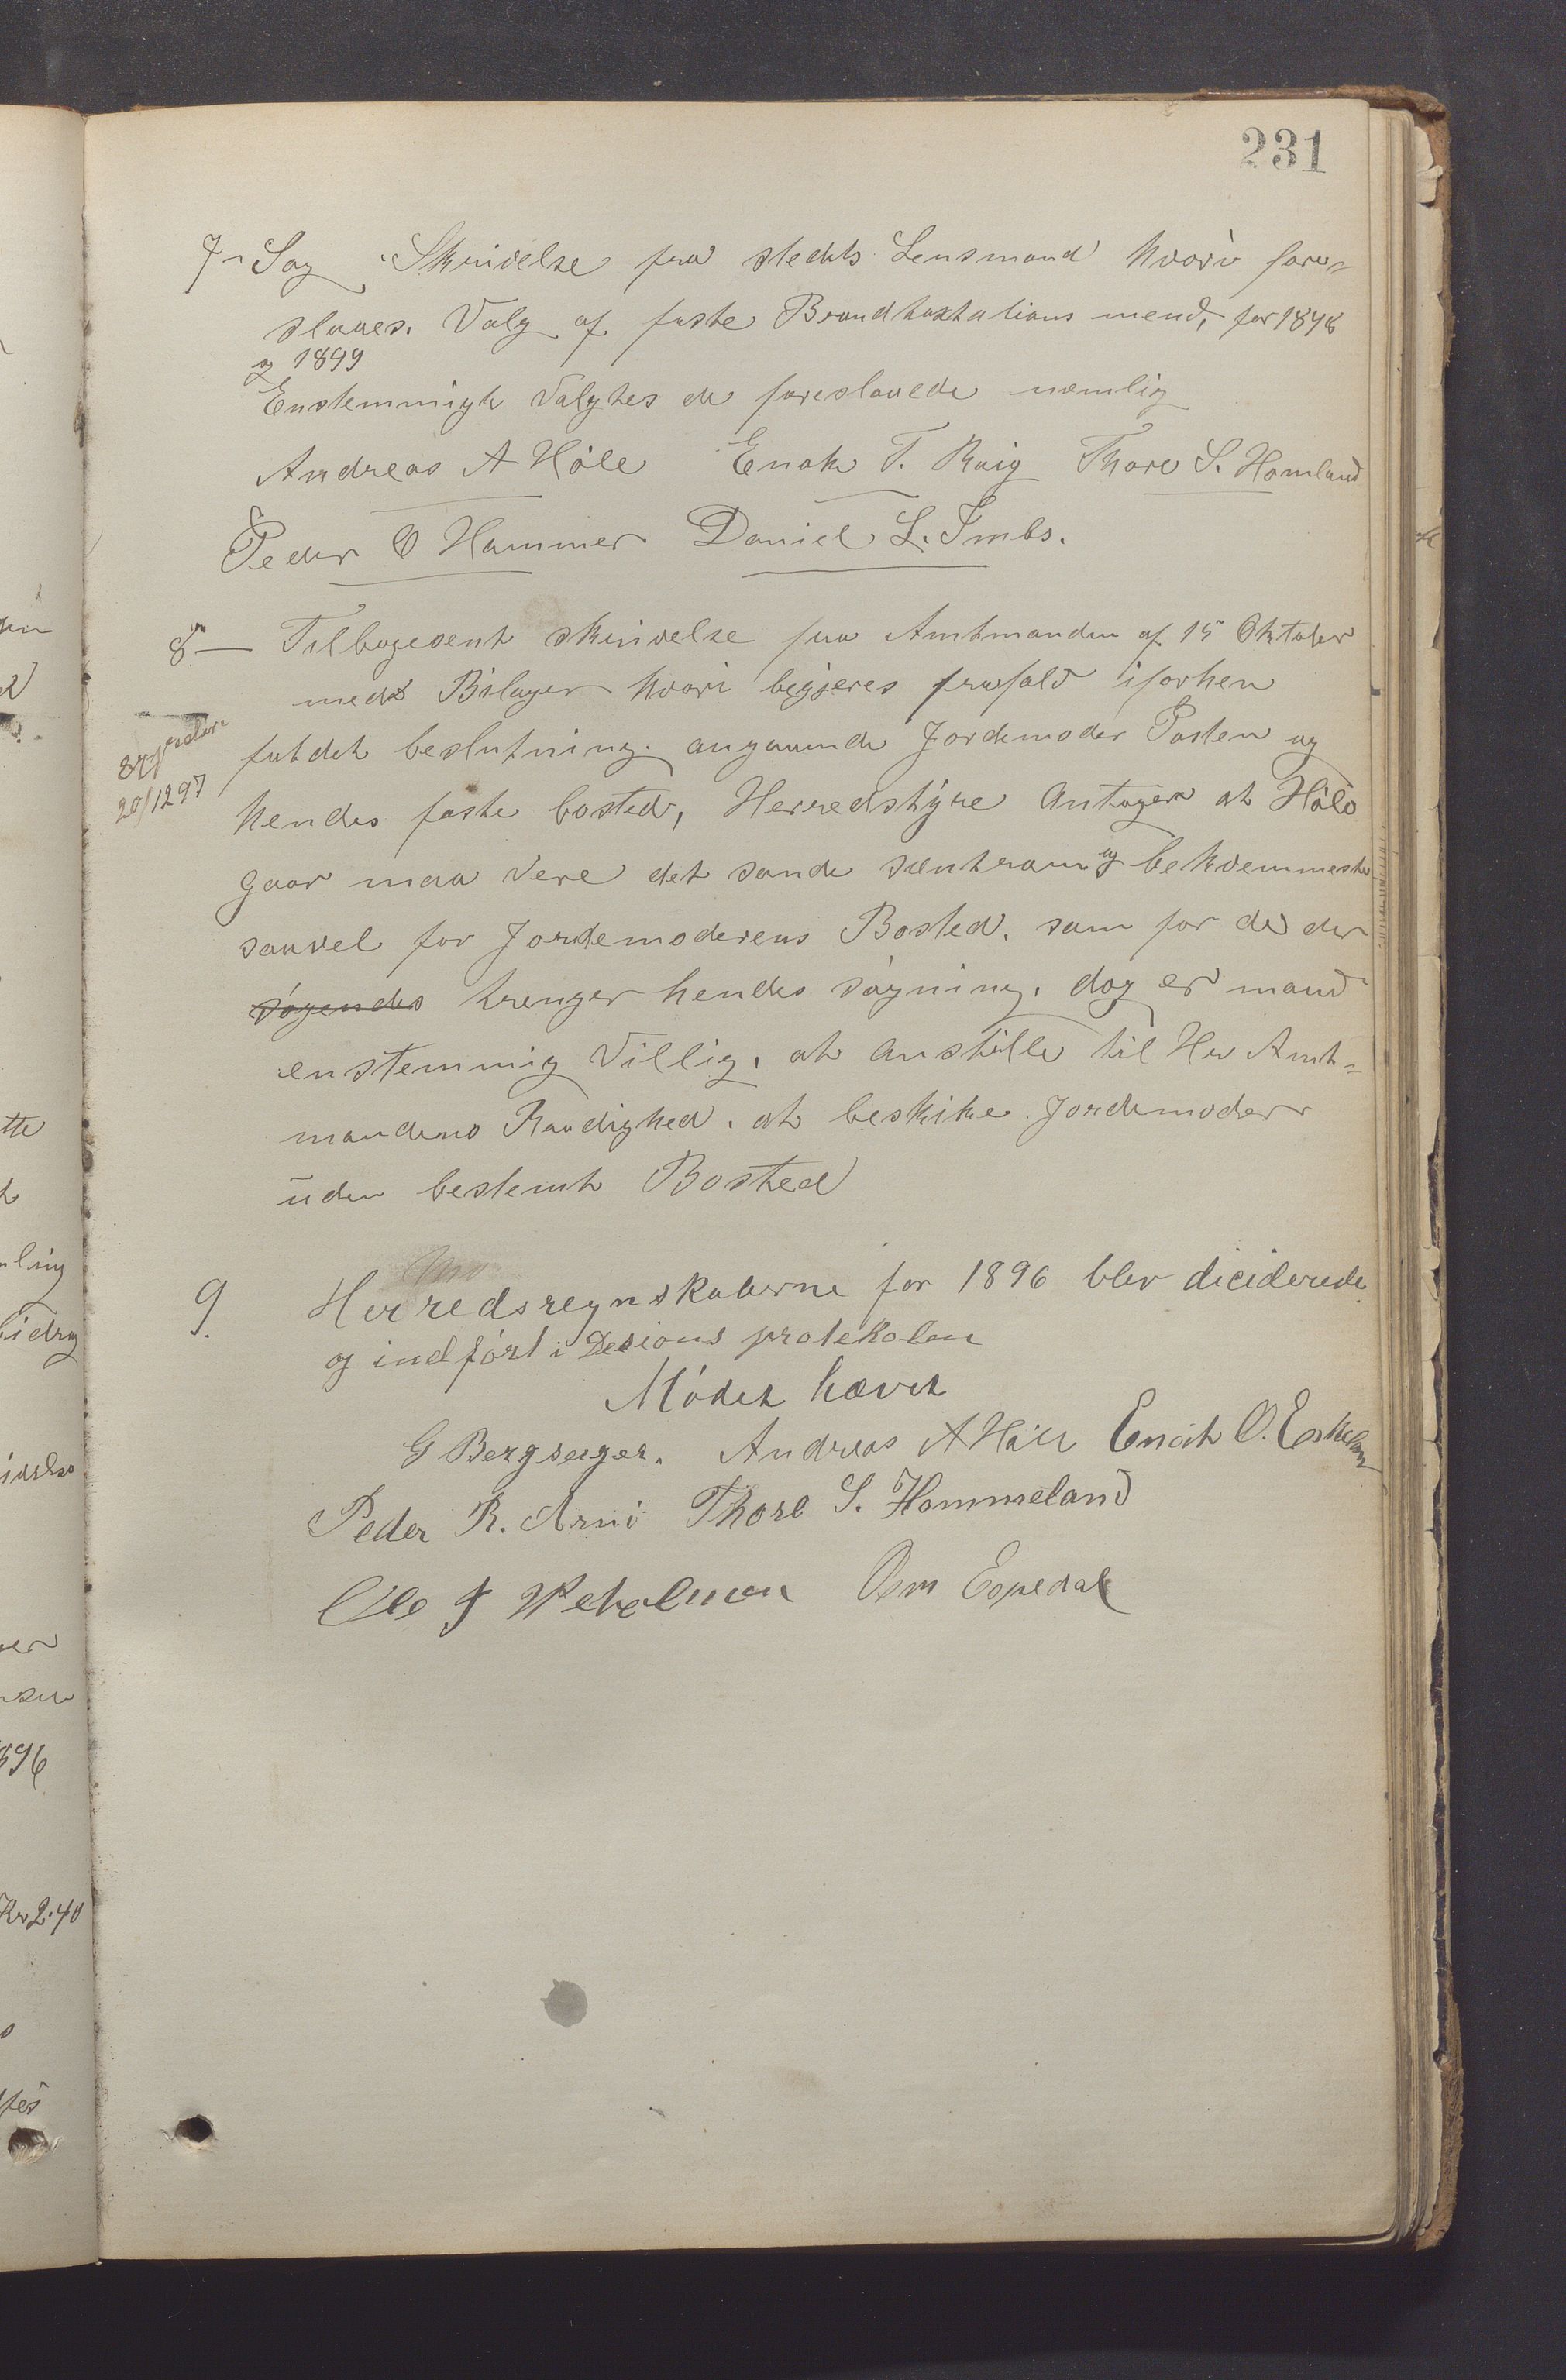 231
7- Sag Skrivelse fra stedets Lensmand hvori fore-
slaaes. Valg af faste Brandtaxtations mend, for 1898
og 1899
Enstemmigt Valgtes de foreslaaede nemlig
Andreas A Høle Enok T. Roig Thore S. Homland
Peder O Hammer Daniel L. Imbs.
8 — Tilbagesent skrivelse fra Amtmanden af 15 Oktober
med Bilager hvori begjeres frafald iforhen
fatdet beslutning. angaaende Jordemoder Posten og
Expeder
20/12 97
hendes faste bosted, Herredstyre Antager at Høle
gaar maa Vere det sande sentram og bekvemmeste
saavel for Jordemoderens Bosted. som for de der
søgendes trenger hendes søgning. dog er mand
enstemmig Villig. at anstille til Hr Amt-
mandens Raadighed. at beskike Jordemoder
uden bestemt Bosted
9. Herredsregnskaberne for 1896 blev diciderede
og indført i Desions protekolen
Mødet hævet
G Bergsagel. Andreas A Høle Enok O. Eskeland
Peder R. Arni Thore S. Hommeland
Ole Osm Espedal
ling
bidrag
896
Kr 2.40